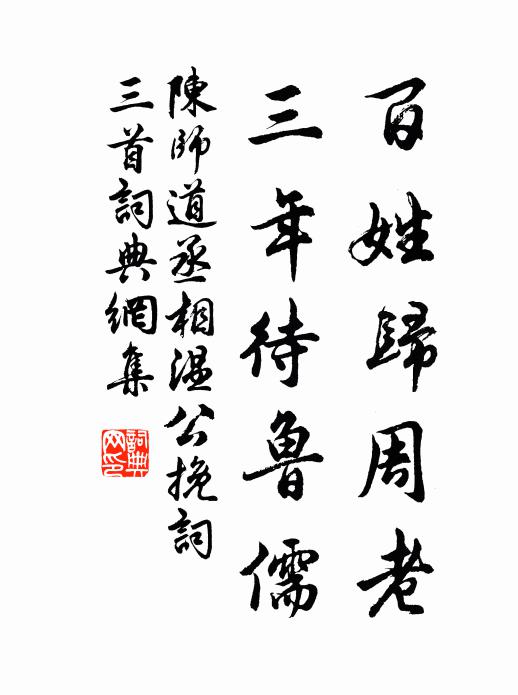 百姓歸周老
三年待魯儒
陳師道丞相溫公挽詞
三首詞典網集
詞典
网印